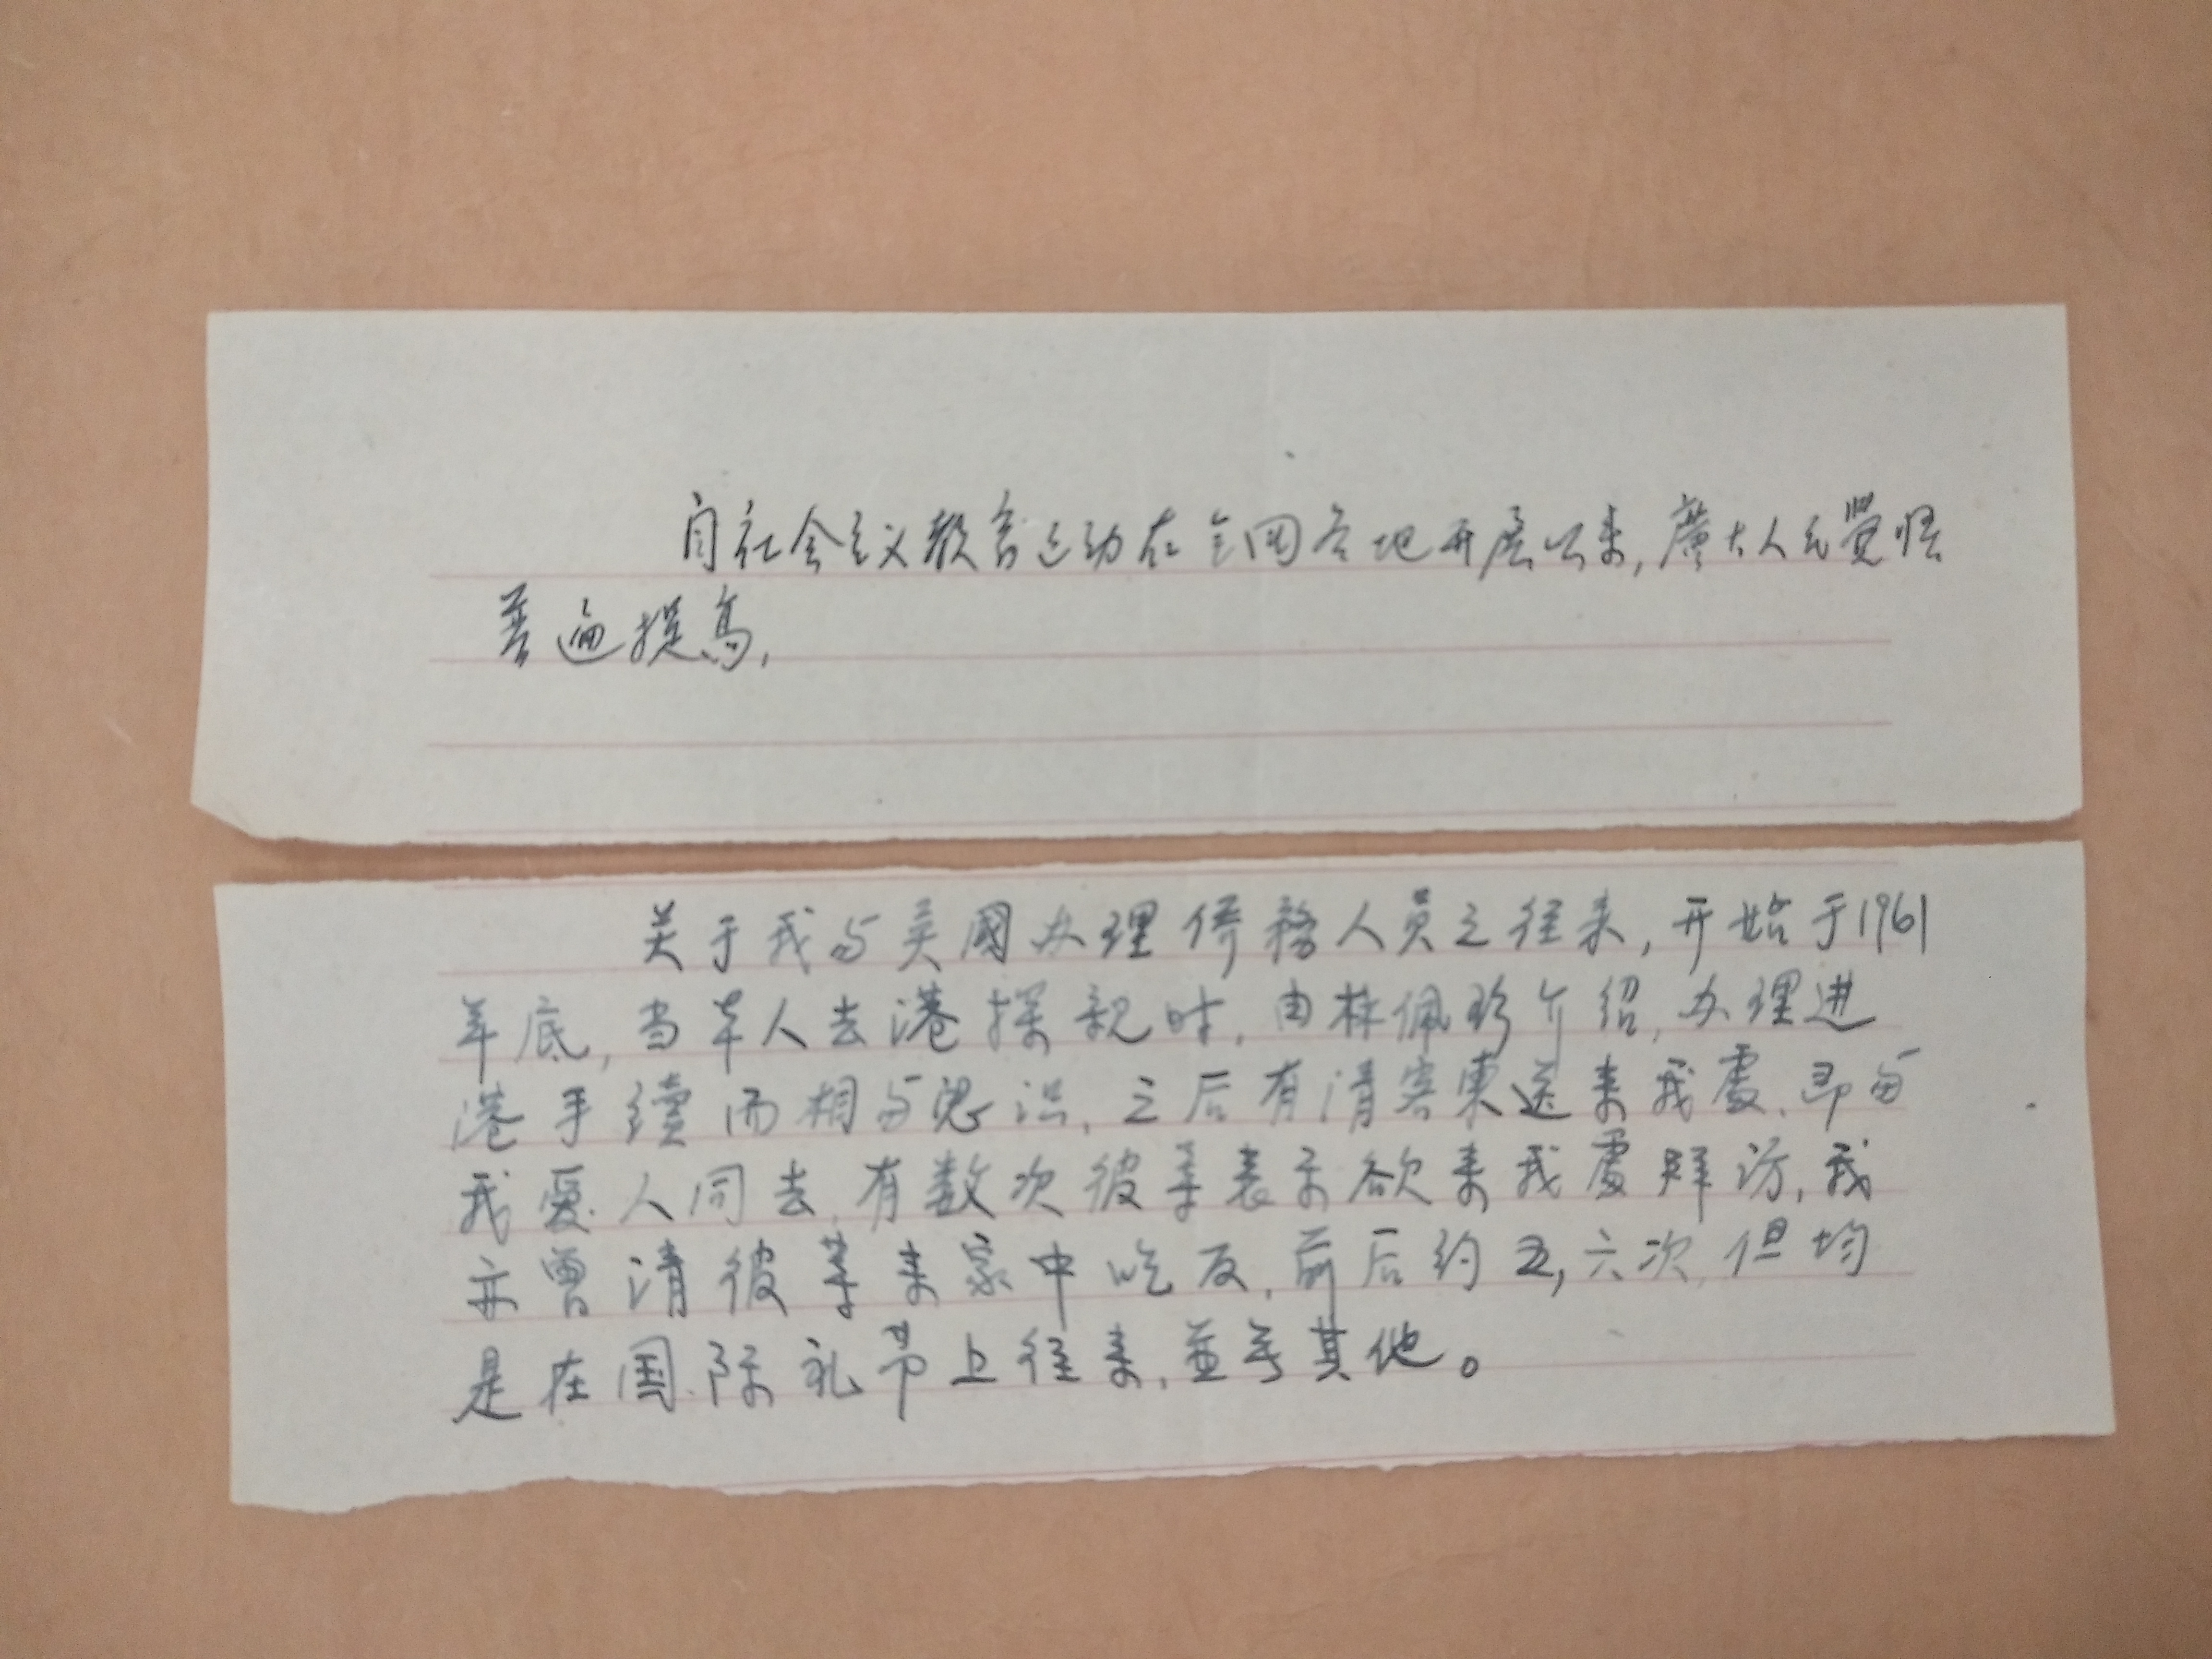 自社会主义教育运动在全国各地开展以来,廣大人民覺悟
普遍提高,
关于我与英國办理侨務人員之往来,开始于1961
年底,当本人去港探親时,由林佩珍介绍,办理进
港手续而相与認识,之后有请客柬送来我處,即与
我愛人同去,有数次彼等表示欲来我處拜访,我
亦曾请彼等来家中吃饭,前后约五,六次,但均
是在国际礼节上往来,並无其他。